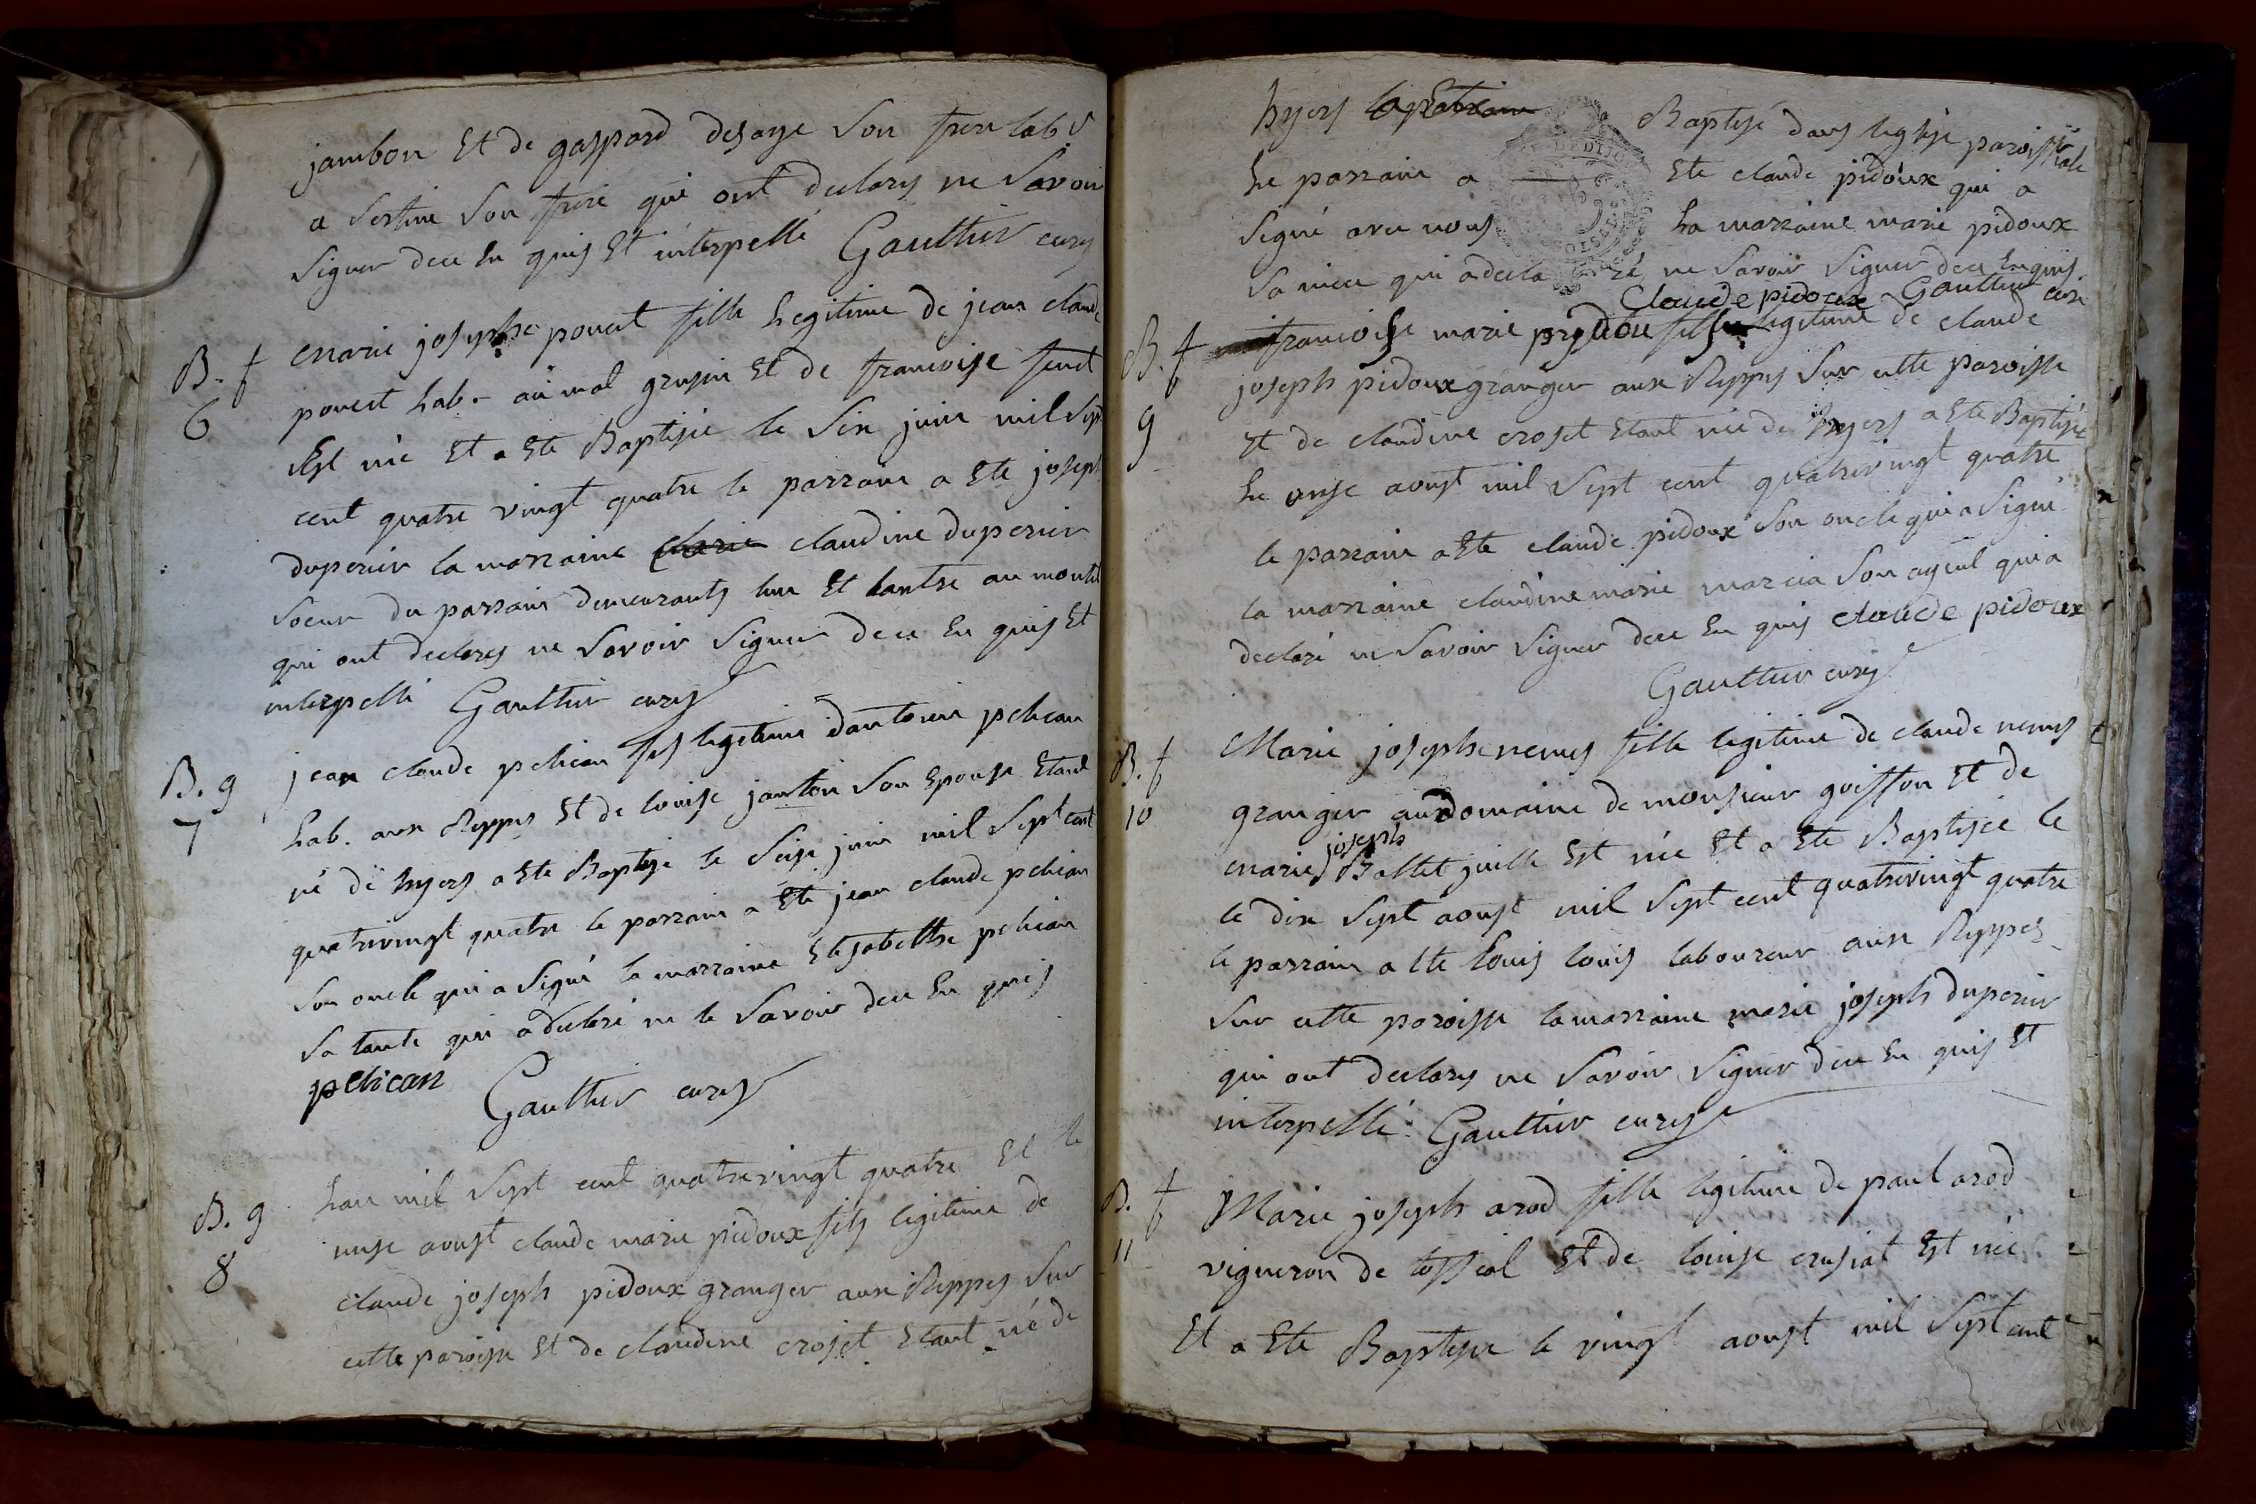 jambon Et de gaspard desaye son frere lab.r
a sertine son frere qui ont declarés ne savoir
signer dece En quis Et interpellé Gaulthier curé
B. f
6
marie josephe pouent fille legitime de jean claude
pouent hab. au mal grusin Et de francoise
Est née Et a Eté Baptisée le Six juin mil Sept
cent quatre vingt quatre le parrain a Eté joseph
duperier la marraine marie claudine duperier
soeur du parrain demeurants lun Et lautre au
qui ont declarés ne Savoir Signer dece En quis Et
interpellé Gaulthier curé
B. g
7
jean claude pelican fils legitime dantoine pelican
hab. aux Reppes Et de louise janton Son Epouse Etant
né de hyers a Eté Baptisé le Seise juin mil Sept cent
quatrevingt quatre le parrain a Eté jean claude pelican
Son oncle qui a Signé la marraine Elisabethe pelican
Sa tante qui a declaré ne le Savoir dece En quis
pelican Gaulthier curé
B. g
8
Lan mil Sept cent quatrevingt quatre Et le
onse aoust claude marie pidoux fils legitime de
claude joseph pidoux granger aux Reppes Sur
cette paroisse Et de claudine croset Etant né de
hyers Baptisé dans leglise paroissiale
Le parrain a Eté claude pidoux qui a
Signé avec nous La marraine marie pidoux
Sa niece qui a declaré ne Savoir Signer dece Enquis
Claude pidoux Gaulthier curé
B. f
9
francoise marie pydou fille legitime de claude
joseph pidoux granger aux Reppes Sur cette paroisse
et de claudine croset Etant née de hyers a Eté Baptisée
Le onse aoust mil Sept cent quatrevingt quatre
le parrain a Eté claude pidoux Son oncle qui a Signé
la marraine claudine marie marcia Son ayeul qui a
declaré ne Savoir Signer dece En quis claude pidoux
Gaulthier curé
B. f
10
Marie josephe nemes fille legitime de claude nemes
granger au domaine de monsieur goisson Et de
marie joseph Ballet juille Est née Et a Eté Baptisée le
le dix Sept aoust mil Sept cent quatrevingt quatre
le parrain a Eté Louis louis laboureur aux Reppes
Sur cette paroisse la marraine marie joseph duperier
qui ont declarés ne Savoir Signer dece En quis Et
interpellé Gaulthier curé
B. f
11
Marie joseph arod fille legitime de paul arod
vigneron de tossial Et de louise crusiat Est née
Et a Eté Baptisée le vingt aoust mil Sept cent